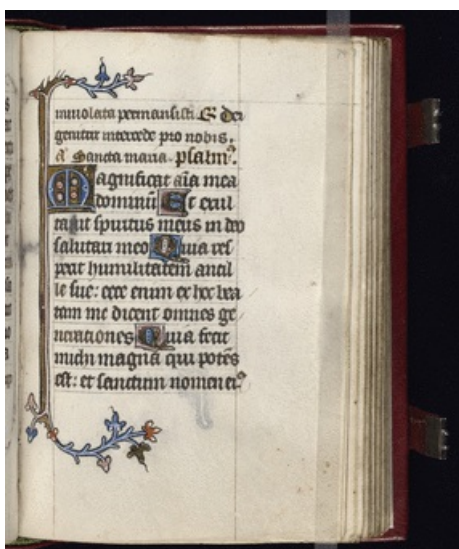 inviolata permansisti. ℣ Dei
genitrix intercede pro nobis.
a Sancta maria. psalm⁹.
Magnificat aīa mea
dominū Et exul
tauit spiritus meus in deo
salutari meo Quia res
pexit humilitatem ancil
le sue: ecce enim ex hoc bea
tam me dicent omnes ge
nerationes Quia fecit
michi magna qui potēs
est: et sanctum nomen ei⁹